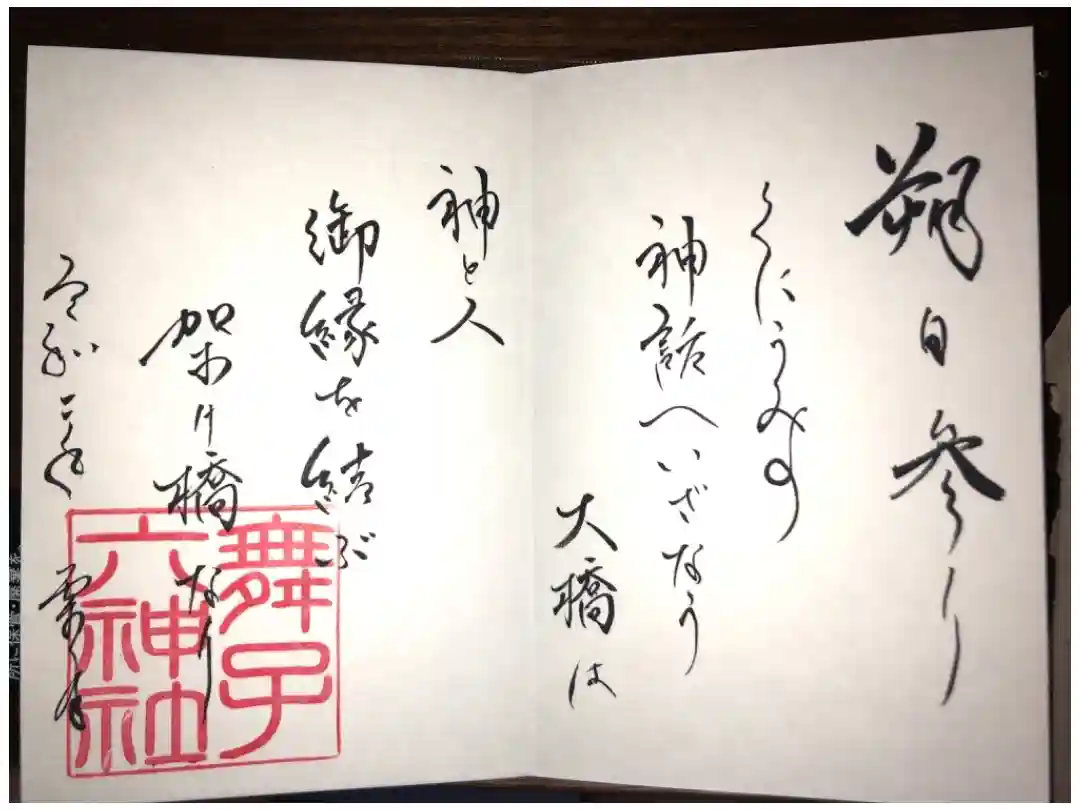 朔日参り
くにうみの
神話へいざなう
大橋は
神と人
御縁を結ぶ
架け橋なり
令和二年 霜月
舞子
六神社
所に保管・廃棄を。